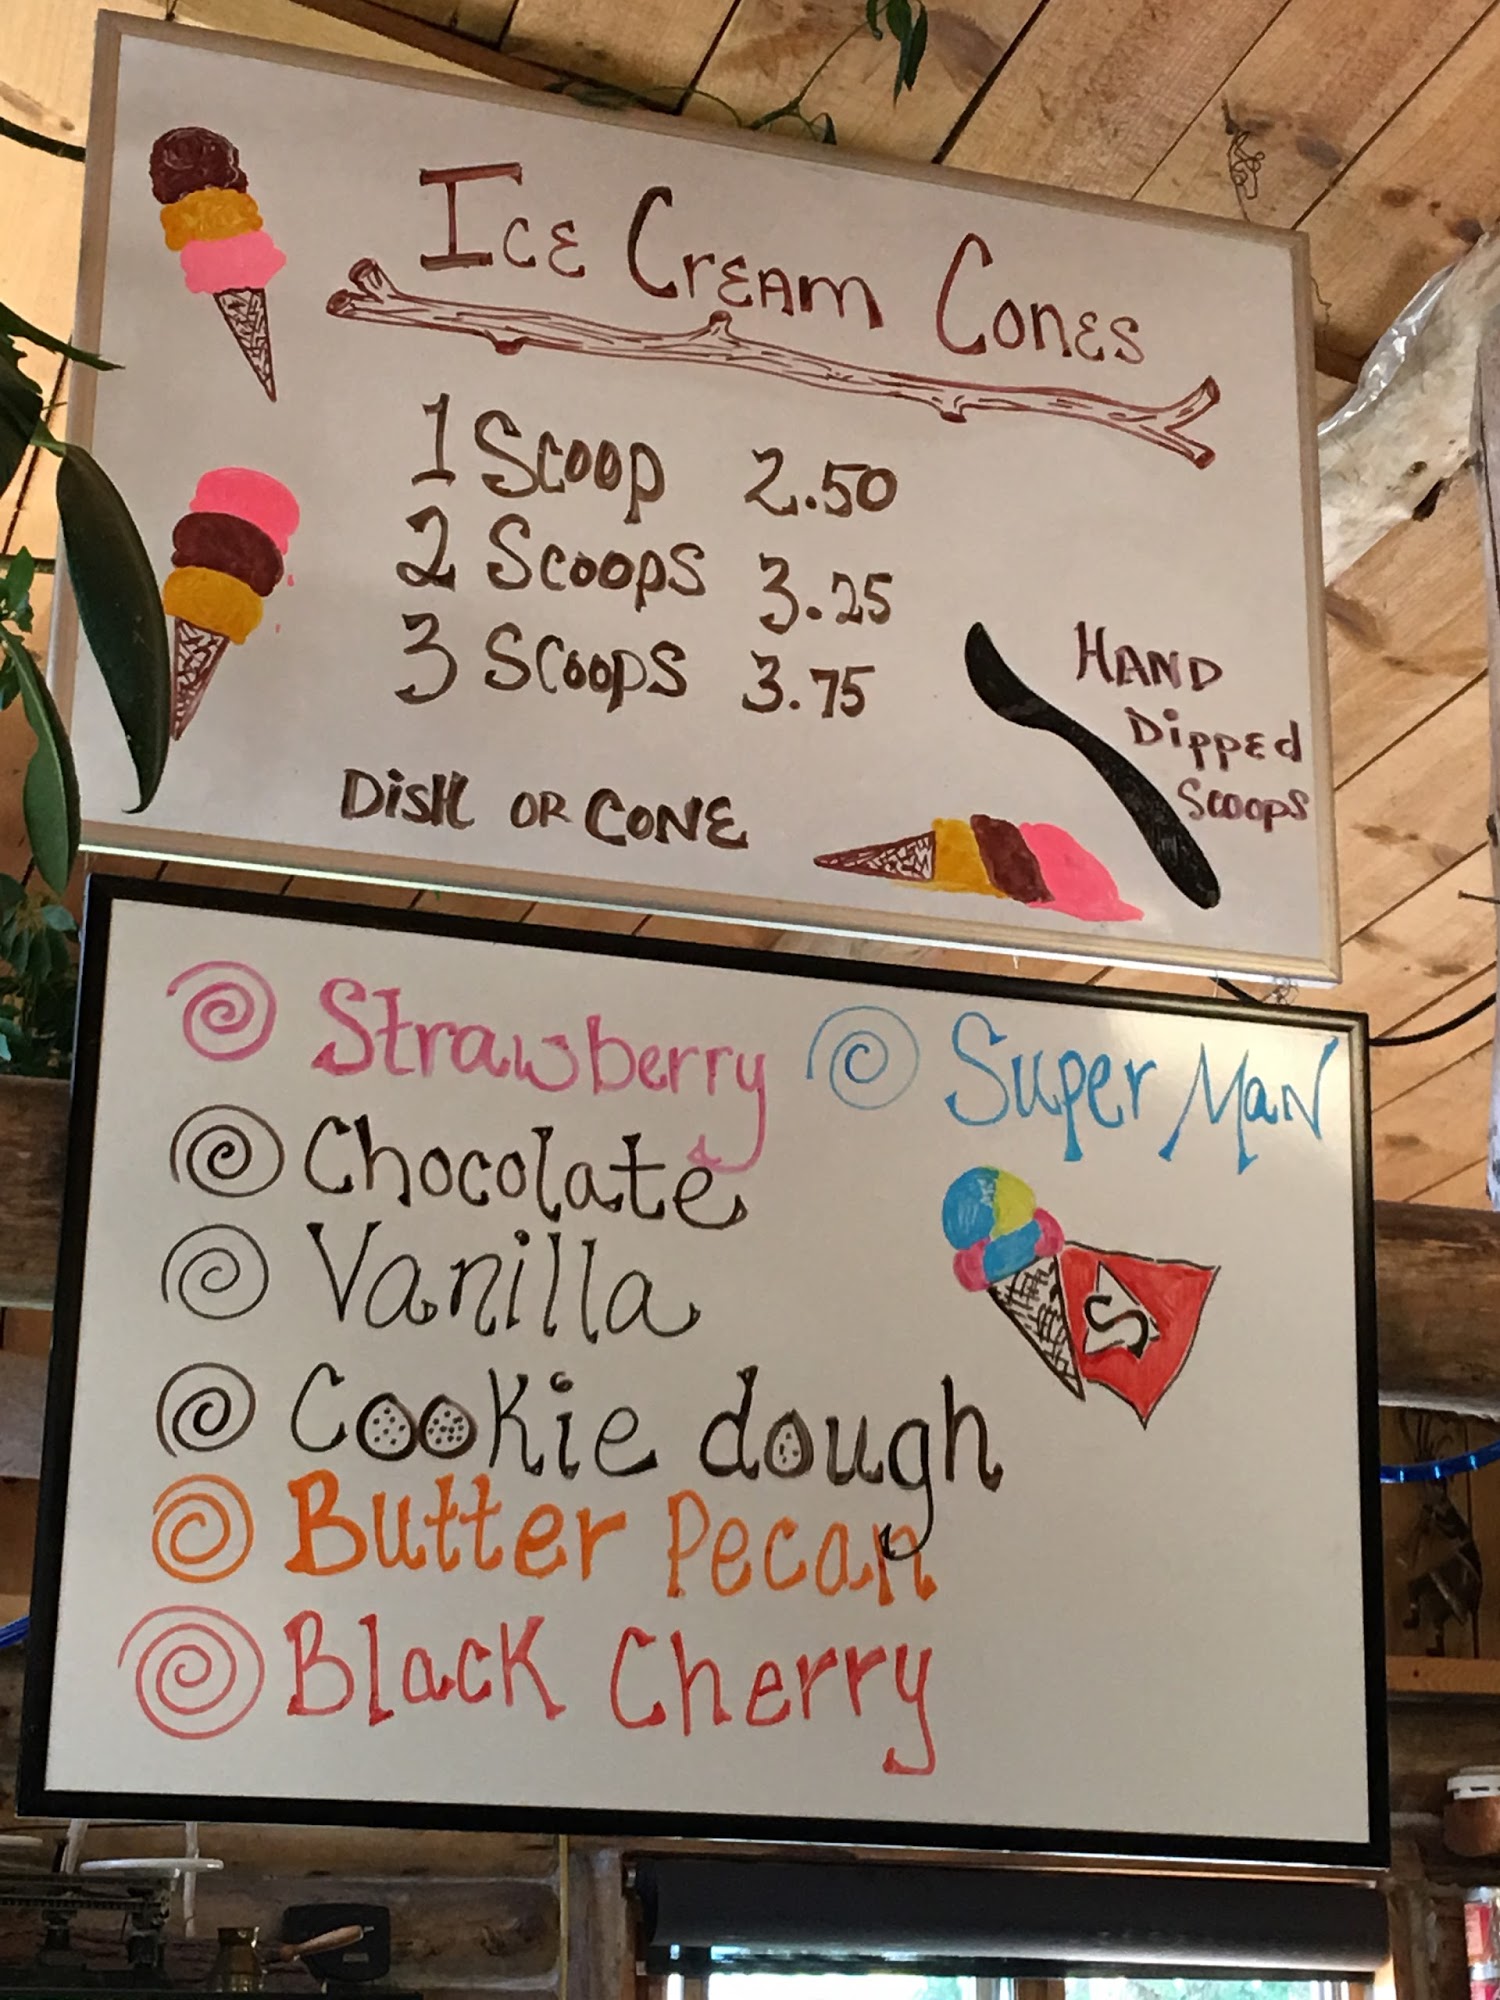 ICE CREAM CONES
1 SCOOP 2.50
2 SCOOPS 3.25
3 SCOOPS 3.75
HAND
DippED
SCOOPS
DiSH OR CONE
Strawberry
Super MaN
Chocolate
Vanilla
S
Cookie dough
Butter Pecan
Black Cherry